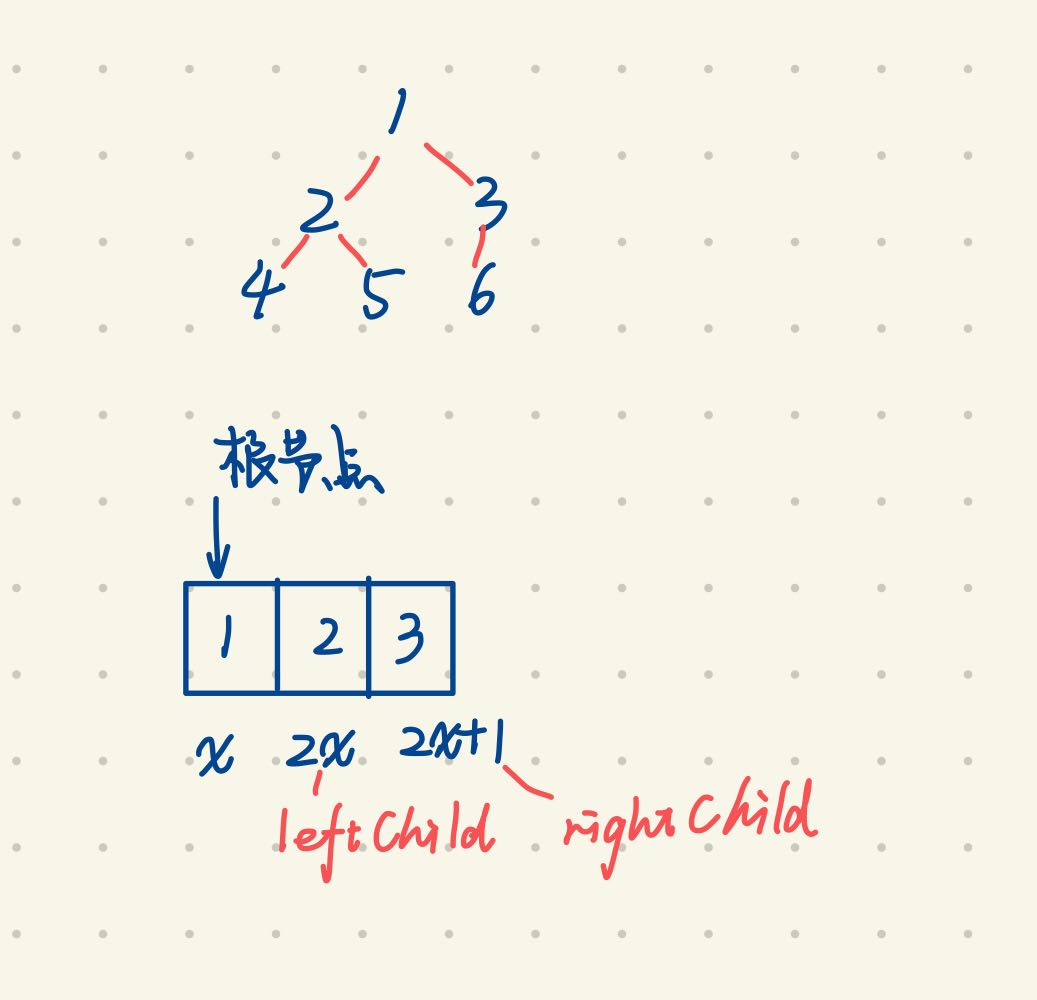 1
2 3
4 5 6
根节点
1 2 3
x 2x 2x+1
left Child right Child